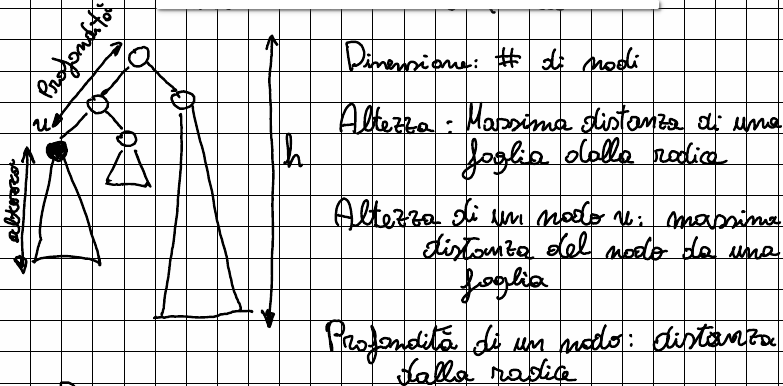 Profondità
u
altezza
h
Dimensione: # di nodi
Altezza : Massima distanza di una
foglia dalla radice
Altezza di un nodo u: massima
distanza del nodo da una
foglia
Profondità di un nodo: distanza
dalla radice